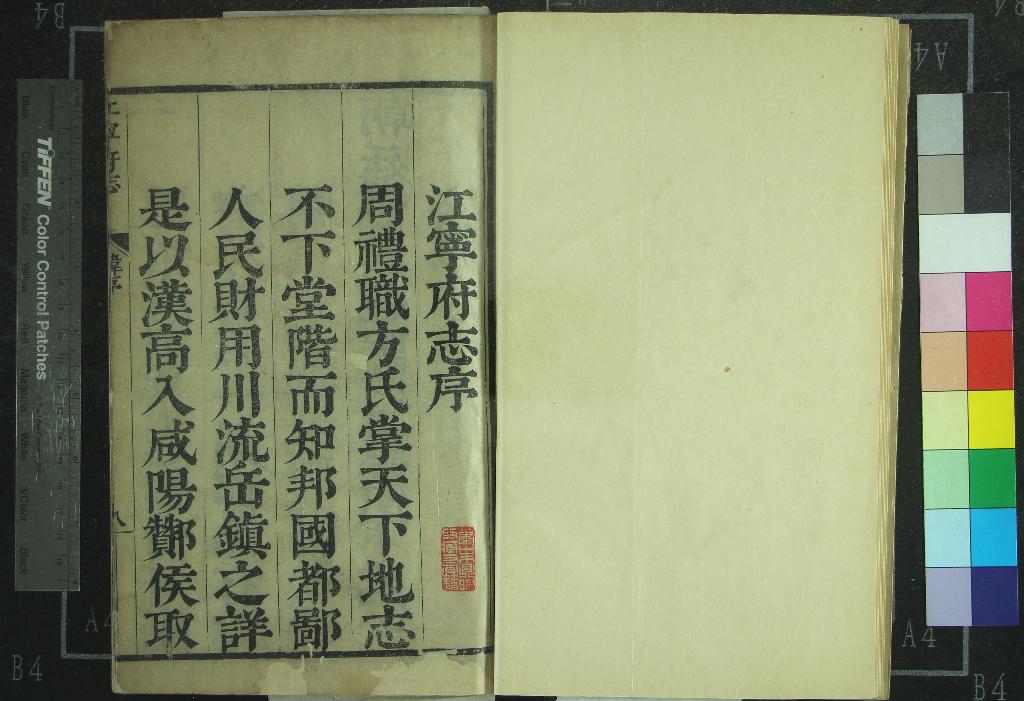 江寧府志序
周禮職方氏掌天下地志
不下堂階而知邦國都鄙
人民財用川流岳鎮之詳
是以漢高入咸陽酇侯取
TIFFEN Color Control Patches
Blue
Cyan
Green
Yellow
Red
Magenta
White
3/Color
Black
B4
A4
A4
B4
A4
B4